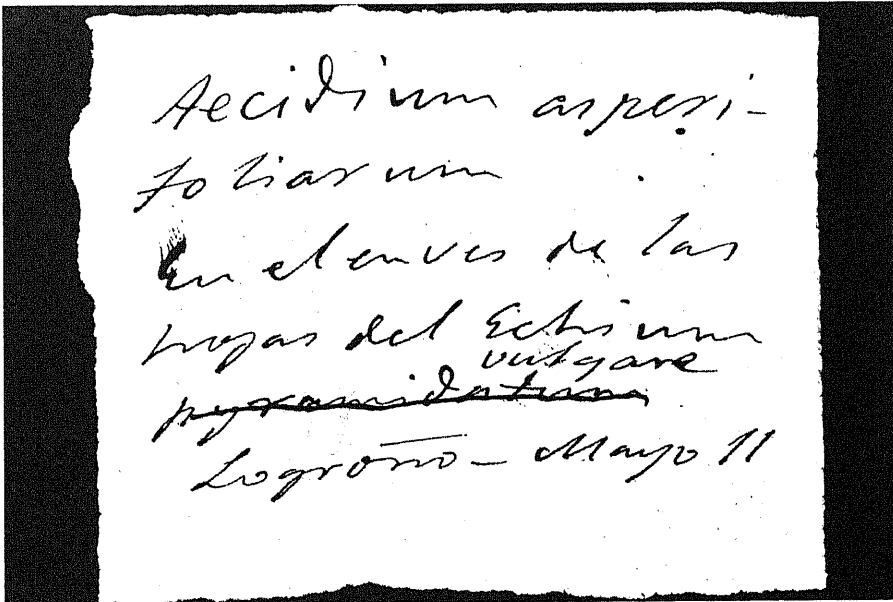 Aecidium asperi-
foliarum
En el enves de las
hojas del Echium
vulgare
pyramidatum
Logroño - Mayo 11